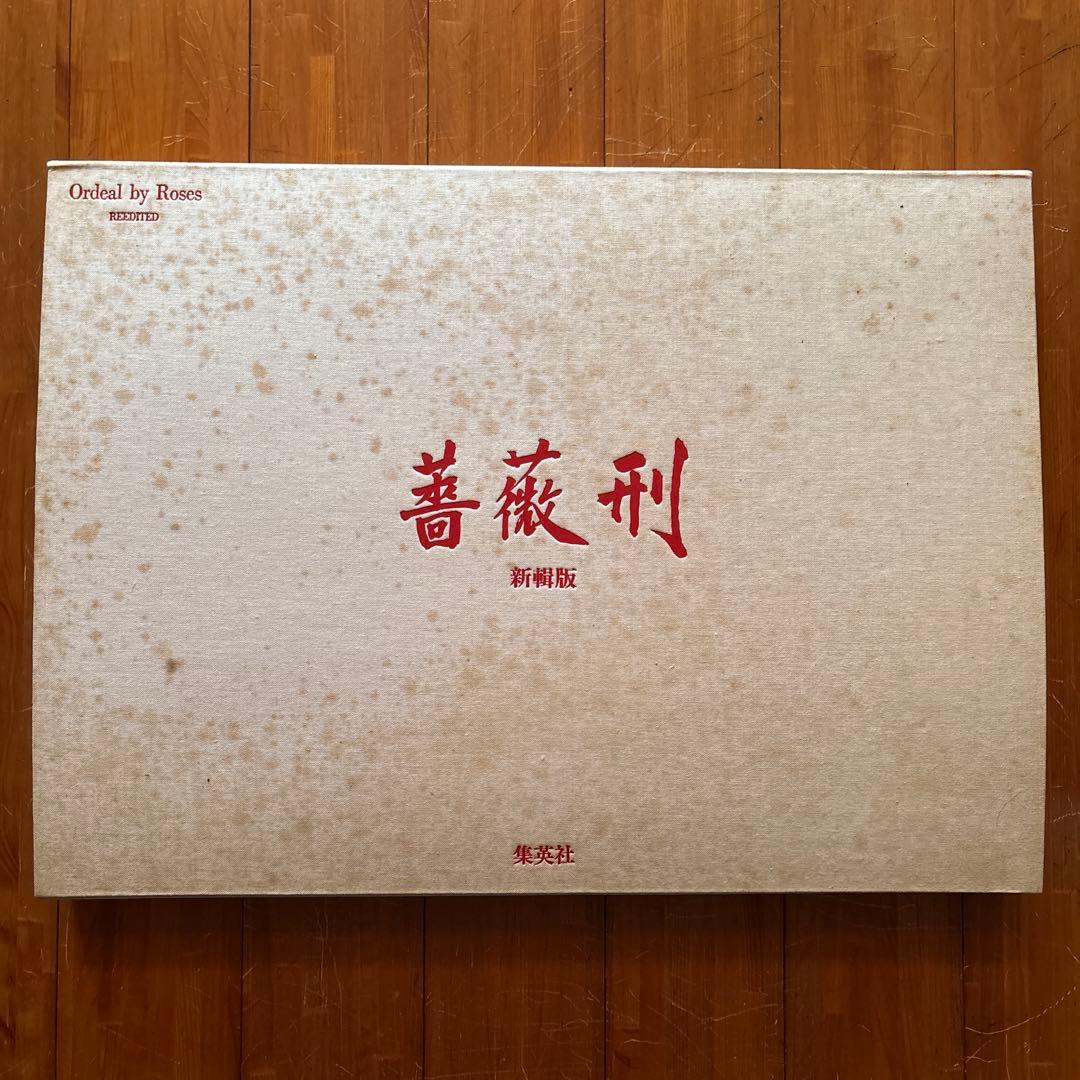 Ordeal by Roses
REEDITED
薔薇刑
新輯版
集英社